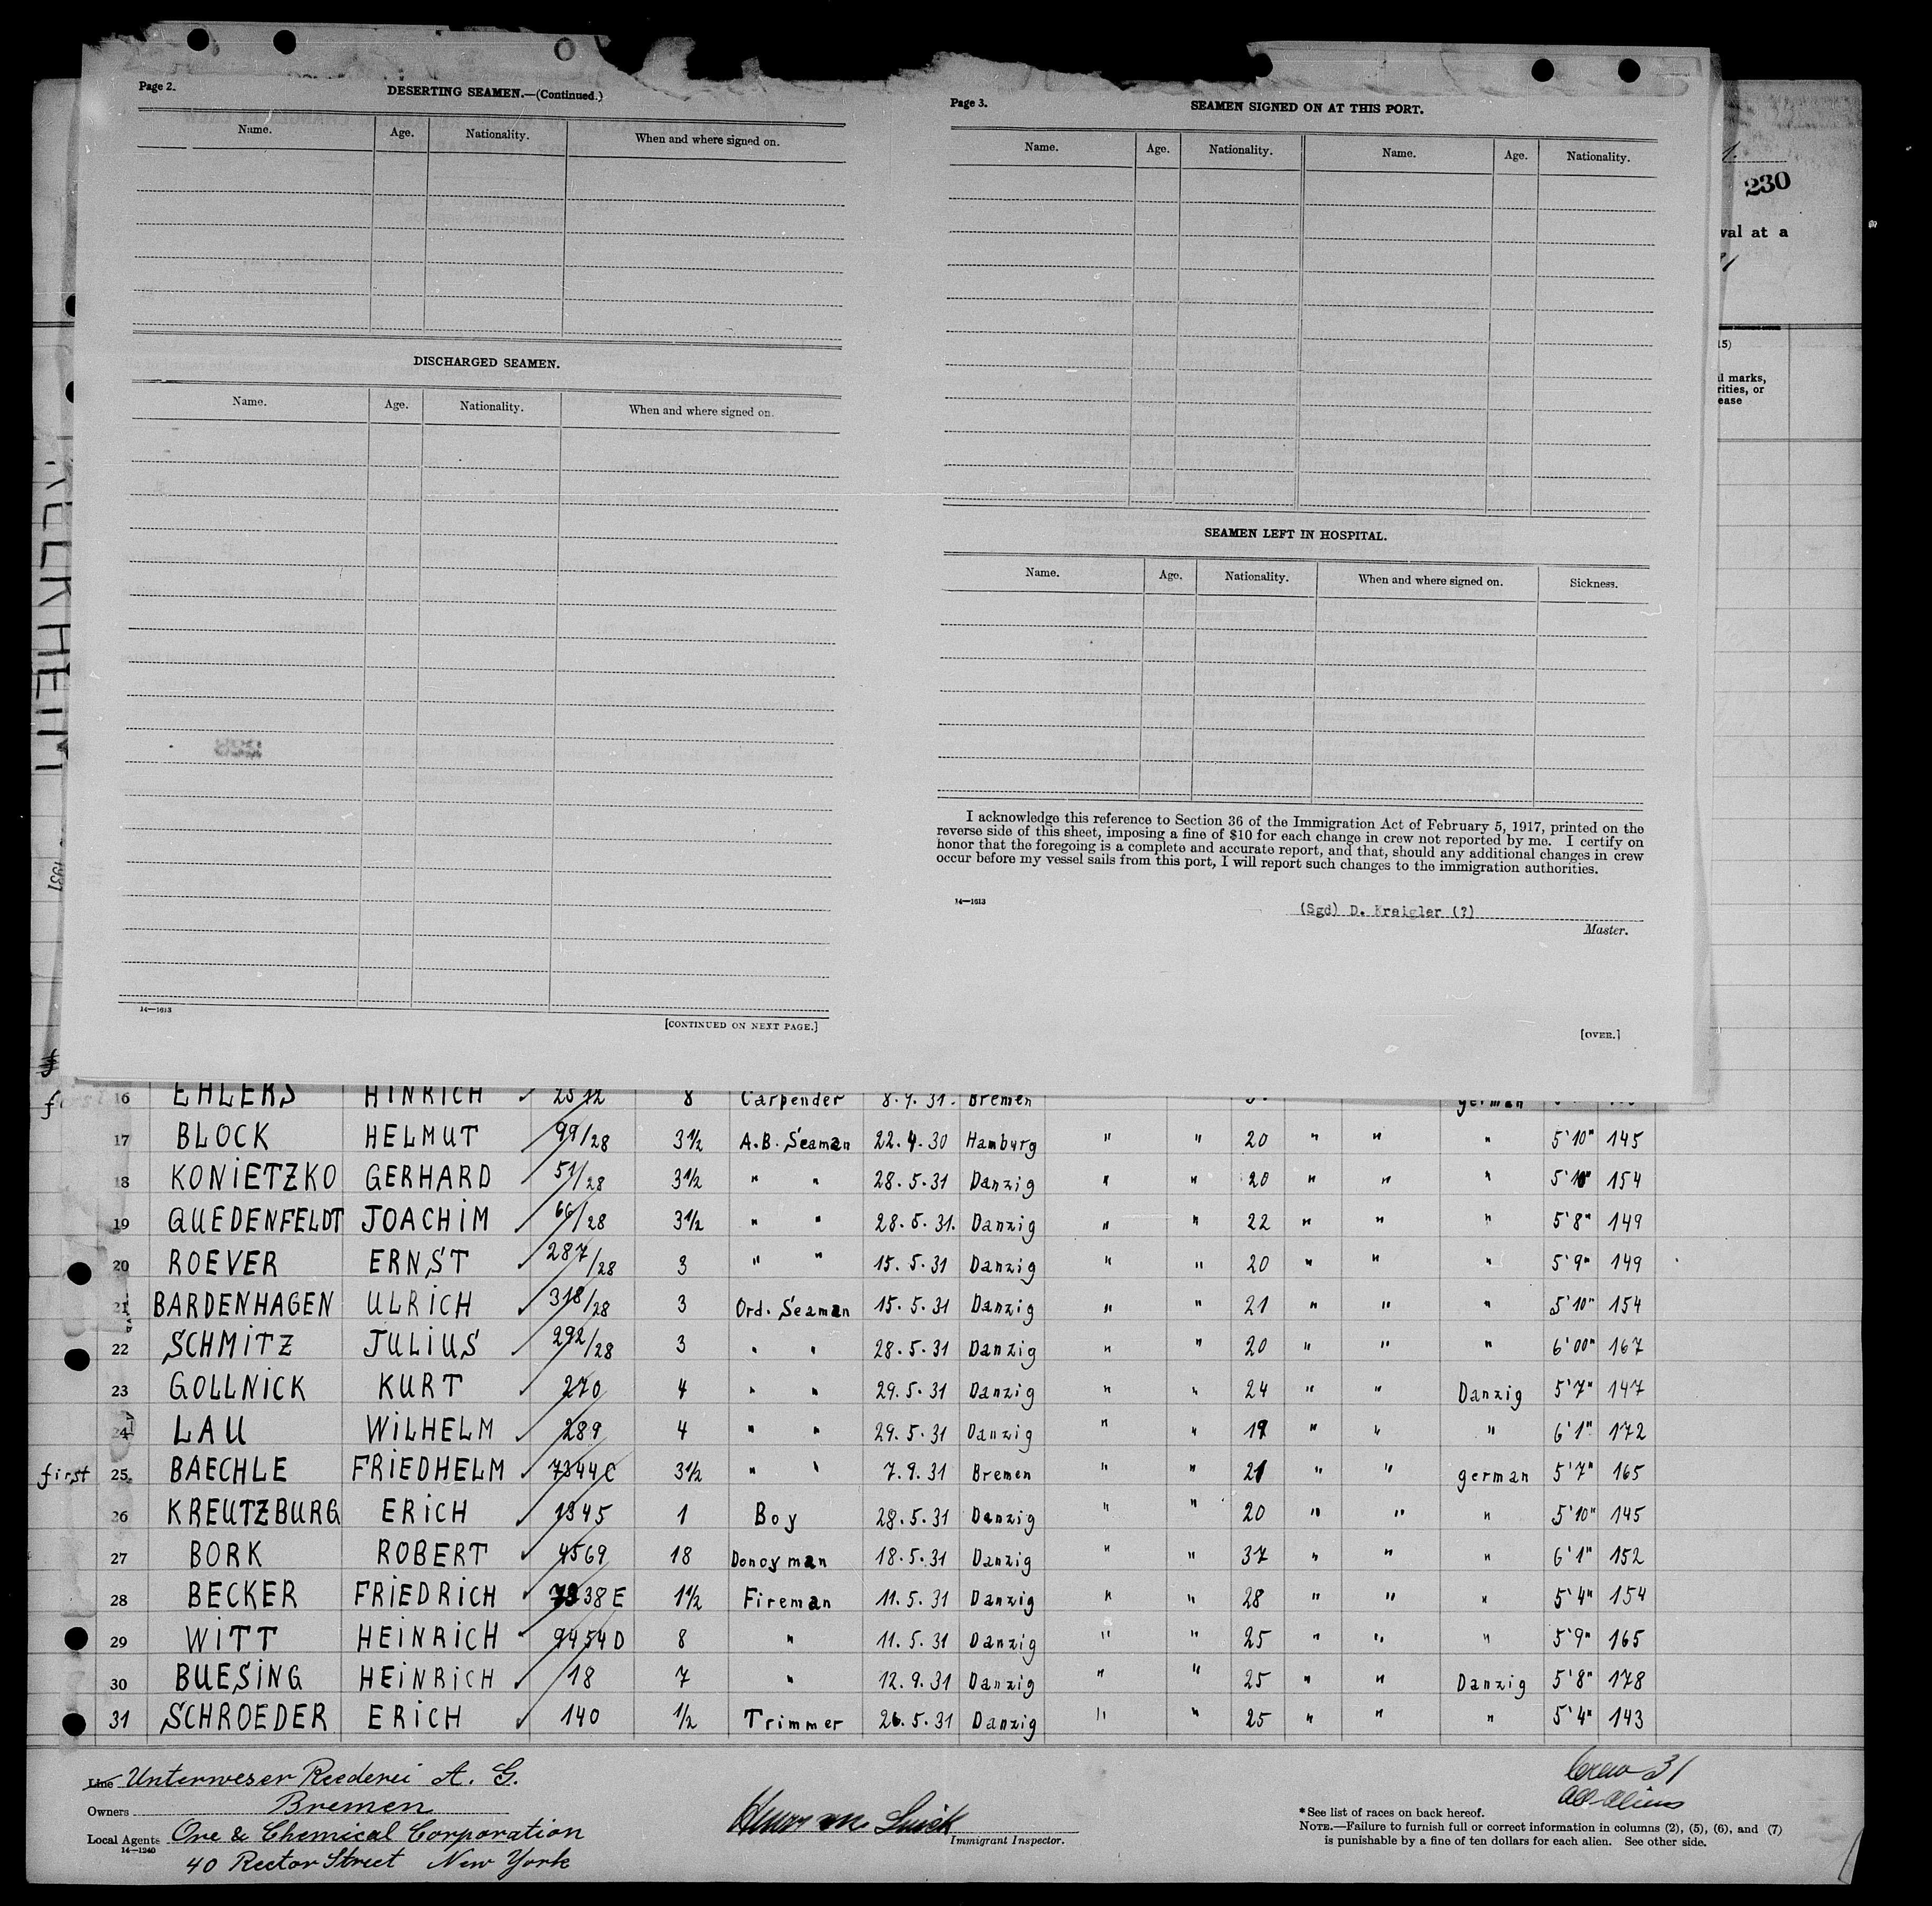 Page 2.
DESERTING SEAMEN.—(Continued.)
Name. Age. Nationality. When and where signed on.
DISCHARGED SEAMEN.
Name. Age. Nationality. When and where signed on.
14—1613
[CONTINUED ON NEXT PAGE.]
Page 3.
SEAMEN SIGNED ON AT THIS PORT.
Name. Age. Nationality. Name. Age. Nationality.
SEAMEN LEFT IN HOSPITAL.
Name. Age. Nationality. When and where signed on. Sickness.
I acknowledge this reference to Section 36 of the Immigration Act of February 5, 1917, printed on the
reverse side of this sheet, imposing a fine of $10 for each change in crew not reported by me. I certify on
honor that the foregoing is a complete and accurate report, and that, should any additional changes in crew
occur before my vessel sails from this port, I will report such changes to the immigration authorities.
14—1613
(Sgd) D. Kreigler (?)
Master.
[OVER.]
230
val at a
15)
l marks,
rities, or
ease
1931
16 EHLERS HINRICH 2512 8 Carpender Bremen german
17 BLOCK HELMUT 99/28 3½ A.B. Seaman 22.4.30 Hamburg " " 20 " " " 5'10" 145
18 KONIETZKO GERHARD 51/28 3½ " " 28.5.31 Danzig " " 20 " " " 154
19 QUEDENFELDT JOACHIM 66/28 3½ " " 28.5.31. Danzig " " 22 " " " 5'8" 149
20 ROEVER ERNST 287/28 3 " " 15.5.31 Danzig " " 20 " " " 5'9" 149
21 BARDENHAGEN ULRICH 318/28 3 Ord. Seaman 15.5.31 Danzig " " 21 " " " 5'10" 154
22 SCHMITZ JULIUS 292/28 3 " " 28.5.31 Danzig " " 20 " " " 6'00" 167
23 GOLLNICK KURT 270 4 " " 29.5.31 Danzig " " 24 " " Danzig 5'7" 147
24 LAU WILHELM 289 4 " " 29.5.31 Danzig " " 19 " " " 6'1" 172
first 25 BAECHLE FRIEDHELM 7344C 3½ " " 7.9.31 Bremen " " 21 " " german 5'7" 165
26 KREUTZBURG ERICH 1345 1 Boy 28.5.31 Danzig " " 20 " " " 5'10" 145
27 BORK ROBERT 4569 18 Donoyman 18.5.31 Danzig " " 37 " " " 6'1" 152
28 BECKER FRIEDRICH 7338E 1½ Fireman 11.5.31 Danzig " " 28 " " " 5'4" 154
29 WITT HEINRICH 9454D 8 " 11.5.31 Danzig " " 25 " " " 5'9" 165
30 BUESING HEINRICH 18 7 " 12.9.31 Danzig " " 25 " " Danzig 5'8" 178
31 SCHROEDER ERICH 140 ½ Trimmer 26.5.31 Danzig " " 25 " " " 5'4" 143
Line Unterweser Reederei A. G.
Owners Bremen
Local Agents Ore & Chemical Corporation
14—1240
40 Rector Street New York
Immigrant Inspector.
Crew 31
All aliens
* See list of races on back hereof.
NOTE.—Failure to furnish full or correct information in columns (2), (5), (6), and (7)
is punishable by a fine of ten dollars for each alien. See other side.